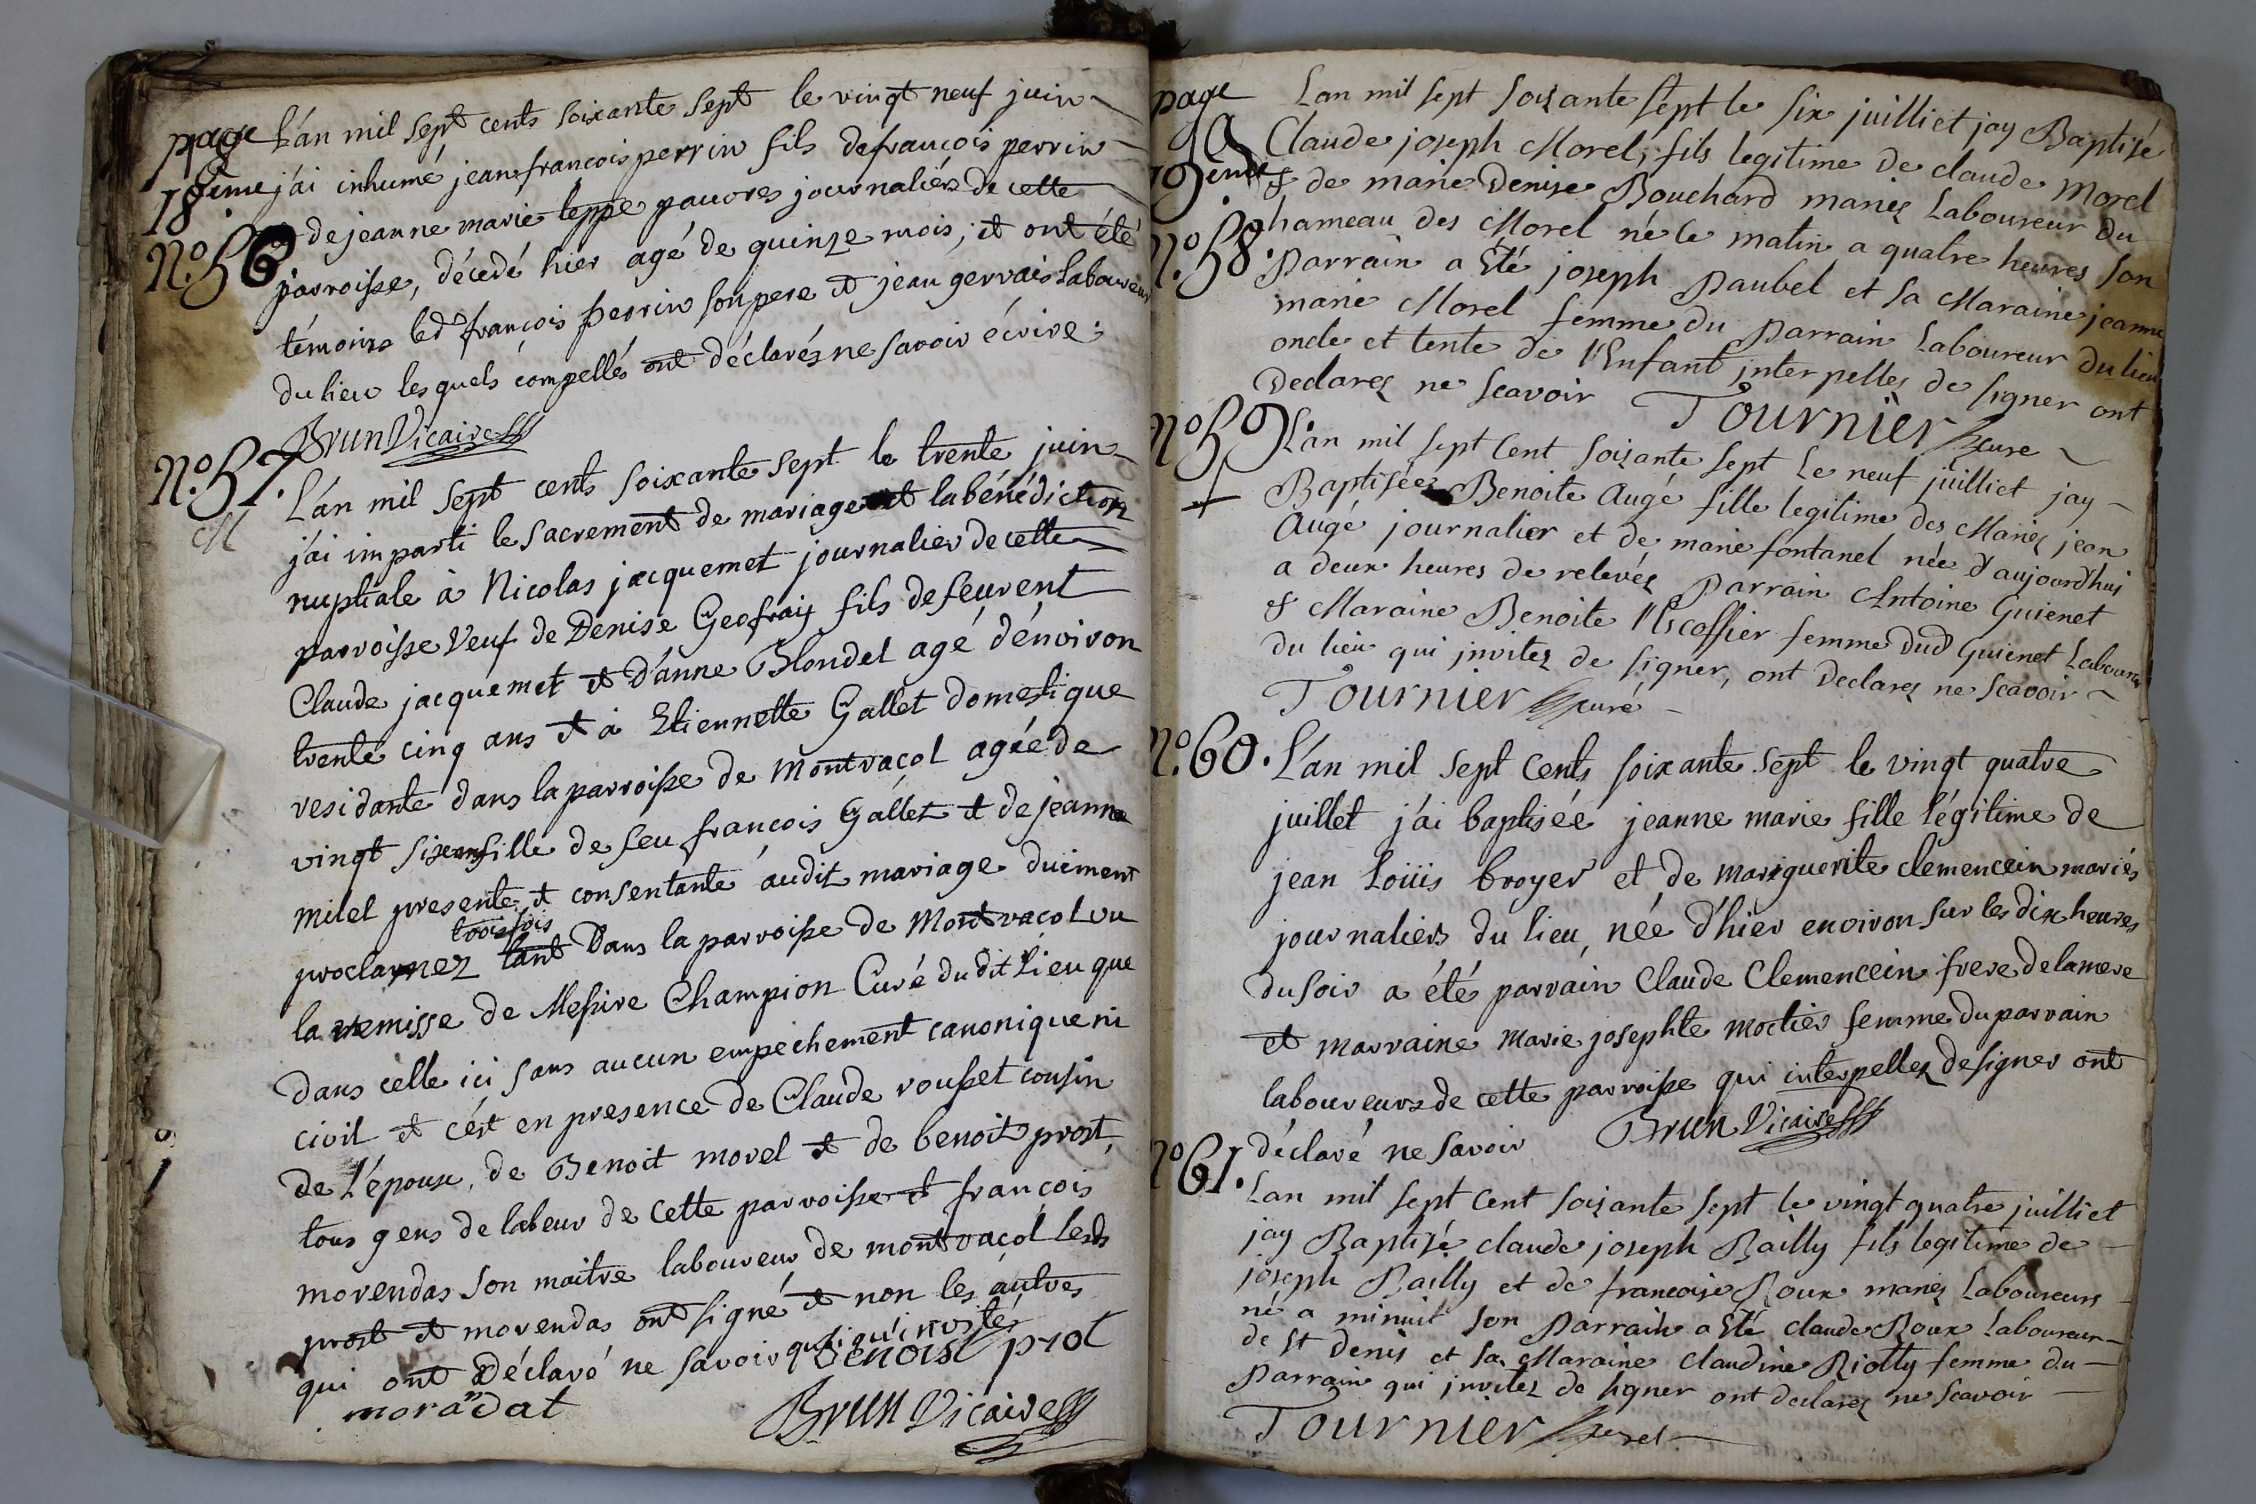 page
18.eme
L'an mil sept cents soixante sept le vingt neuf juin
j'ai inhumé jean francois perrin fils de françois perrin
N.o 56
& de jeanne marie teppe pauvres journaliers de cette
parroisse, décedé hier agé de quinze mois; et ont été
témoins led. françois perrin son pere et jean gervais laboureur
du lieu lesquels compellés ont déclarés ne savoir écrire.
Brun Vicaire
N.o 57.
M
L'an mil sept cents soixante sept le trente juin
j'ai imparti le sacrement de mariage et la bénédiction
nuptiale à Nicolas jacquemet journalier de cette
parroisse Veuf de Denise Geofray fils de feu
Claude jacquemet et d'anne Blondel agé d'environ
trente cinq ans et à Etiennette Gallet domestique
residante dans la parroisse de Montracol agée de
vingt six ans fille de feu françois Gallet et de jeanne
milet presente et consentante audit mariage duëment
trois fois
proclamez tant dans la parroisse de Montracol vu
la remisse de Messire Champion Curé du dit Lieu que
dans celle ici sans aucun empechement canonique ni
civil et c'est en presence de Claude rousset cousin
de l'époux, de Benoit morel et de benoit prost,
tous gens de labeur de cette parroisse et françois
morendas son maitre laboureur de montracol lesds
prost et morendas ont signé et non les autres
qui ont déclaré ne savoir quoiqu'invités
benoist prot
morandat
Brun Vicaire
page
19
19.eme
Lan mil sept soizante sept le six juilliet jay Baptizé
Claude joseph Morel, fils legitime de claude Morel
& de marie Denize Bouchard mariez Laboureur du
N.o 58.
hameau des Morel né le matin a quatre heures son
Parrain a Eté joseph Paubel et sa Maraine jeanne
marie Morel femme du Parrain Laboureur du lieu
oncle et tente de l'Enfant interpellez de signer ont
Declarez ne scavoir Tournier curé
N.o 59.
Lan mil sept Cent soizante sept le neuf juilliet jay
Baptisée Benoite Augé fille legitime des Mariez jean
Augé journalier et de marie fontanel née d'aujourdhui
a deux heures de relevéz Parrain Antoine Guienet
& Maraine Benoite Escoffier femme dud Guienet Laboureur
du lieu qui invitez de signer, ont Declarez ne scavoir
Tournier curé
N.o 60.
L'an mil sept Cents soixante sept le vingt quatre
juillet j'ai baptisée jeanne marie fille légitime de
jean Loüis broyer et de marguerite clemencein mariés
journaliers du lieu, née d'hier environ sur les dix heures
du soir a été parrain Claude Clemencein frere de la mere
et marraine marie josephte moctier femme du parrain
laboureurs de cette parroisse qui interpellez de signer ont
déclaré ne savoir Brun Vicaire
N.o 61.
Lan mil sept Cent soizante sept le vingt quatre juilliet
jay Baptizé claude joseph Bailly fils légitime de
joseph Bailly et de francoise Roux mariez Laboureurs
né a minuit son Parrain a Eté claude Roux Laboureur
de St denis et sa Maraine claudine Riotty femme du
Parrain qui invitez de signer ont declarez ne scavoir
Tournier curé